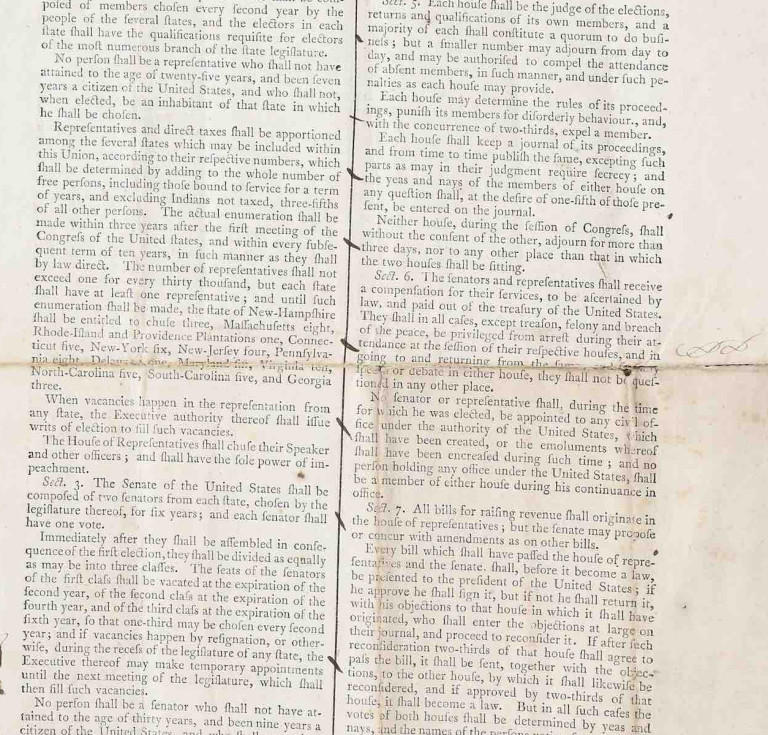 posed of members chosen every second year by the
people of the several ſtates, and the electors in each
ſtate ſhall have the qualifications requiſite for electors
of the moſt numerous branch of the ſtate legiſlature.
No perſon ſhall be a repreſentative who ſhall not have
attained to the age of twenty-five years, and been ſeven
years a citizen of the United States, and who ſhall not,
when elected, be an inhabitant of that ſtate in which
he ſhall be choſen.
Repreſentatives and direct taxes ſhall be apportioned
among the ſeveral ſtates which may be included within
this Union, according to their reſpective numbers, which
ſhall be determined by adding to the whole number of
free perſons, including thoſe bound to ſervice for a term
of years, and excluding Indians not taxed, three-fifths
of all other perſons. The actual enumeration ſhall be
made within three years after the firſt meeting of the
Congreſs of the United ſtates, and within every ſubſe-
quent term of ten years, in ſuch manner as they ſhall
by law direct. The number of repreſentatives ſhall not
exceed one for every thirty thouſand, but each ſtate
ſhall have at leaſt one repreſentative; and until ſuch
enumeration ſhall be made, the ſtate of New-Hampſhire
ſhall be entitled to chuſe three, Maſſachuſetts eight,
Rhode-Iſland and Providence Plantations one, Connec-
ticut five, New-York ſix, New-Jerſey four, Pennſylva-
nia eight, Delaware one, Maryland ſix, Virginia ten,
North-Carolina five, South-Carolina five, and Georgia
three.
When vacancies happen in the repreſentation from
any ſtate, the Executive authority thereof ſhall iſſue
writs of election to fill ſuch vacancies.
The Houſe of Repreſentatives ſhall chuſe their Speaker
and other officers; and ſhall have the ſole power of im-
peachment.
Sect. 3. The Senate of the United States ſhall be
compoſed of two ſenators from each ſtate, choſen by the
legiſlature thereof, for ſix years; and each ſenator ſhall
have one vote.
Immediately after they ſhall be aſſembled in conſe-
quence of the firſt election, they ſhall be divided as equally
as may be into three claſſes. The ſeats of the ſenators
of the firſt claſs ſhall be vacated at the expiration of the
ſecond year, of the ſecond claſs at the expiration of the
fourth year, and of the third claſs at the expiration of the
ſixth year, ſo that one-third may be choſen every ſecond
year; and if vacancies happen by reſignation, or other-
wiſe, during the receſs of the legiſlature of any ſtate, the
Executive thereof may make temporary appointments
until the next meeting of the legiſlature, which ſhall
then fill ſuch vacancies.
No perſon ſhall be a ſenator who ſhall not have at-
tained to the age of thirty years, and been nine years a
citizen of the United States, and who ſhall
Sect. 5. Each houſe ſhall be the judge of the elections,
returns and qualifications of its own members, and a
majority of each ſhall conſtitute a quorum to do buſi-
neſs; but a ſmaller number may adjourn from day to
day, and may be authoriſed to compel the attendance
of abſent members, in ſuch manner, and under ſuch pe-
nalties as each houſe may provide.
Each houſe may determine the rules of its proceed-
ings, puniſh its members for diſorderly behaviour., and,
with the concurrence of two-thirds, expel a member.
Each houſe ſhall keep a journal of its proceedings,
and from time to time publiſh the ſame, excepting ſuch
parts as may in their judgment require ſecrecy; and
the yeas and nays of the members of either houſe on
any queſtion ſhall, at the deſire of one-fifth of thoſe pre-
ſent, be entered on the journal.
Neither houſe, during the ſeſſion of Congreſs, ſhall
without the conſent of the other, adjourn for more than
three days, nor to any other place than that in which
the two houſes ſhall be ſitting.
Sect. 6. The ſenators and repreſentatives ſhall receive
a compenſation for their ſervices, to be aſcertained by
law, and paid out of the treaſury of the United States.
They ſhall in all caſes, except treaſon, felony and breach
of the peace, be privileged from arreſt during their at-
tendance at the ſeſſion of their reſpective houſes, and in
going to and returning from the ſame
ſpeech or debate in either houſe, they ſhall not be queſ-
tioned in any other place.
No ſenator or repreſentative ſhall, during the time
for which he was elected, be appointed to any civil of-
fice under the authority of the United States, which
ſhall have been created, or the emoluments whereof
ſhall have been encreaſed during ſuch time; and no
perſon holding any office under the United States, ſhall
be a member of either houſe during his continuance in
office.
Sect. 7. All bills for raiſing revenue ſhall originate in
the houſe of repreſentatives; but the ſenate may propoſe
or concur with amendments as on other bills.
Every bill which ſhall have paſſed the houſe of repre-
ſentatives and the ſenate. ſhall, before it become a law,
be preſented to the preſident of the United States; if
he approve he ſhall ſign it, but if not he ſhall return it,
with his objections to that houſe in which it ſhall have
originated, who ſhall enter the objections at large on
their journal, and proceed to reconſider it. If after ſuch
reconſideration two-thirds of that houſe ſhall agree to
paſs the bill, it ſhall be ſent, together with the objec-
tions, to the other houſe, by which it ſhall likewiſe be
reconſidered, and if approved by two-thirds of that
houſe, it ſhall become a law. But in all ſuch caſes the
votes of both houſes ſhall be determined by yeas and
nays, and the names of the perſons